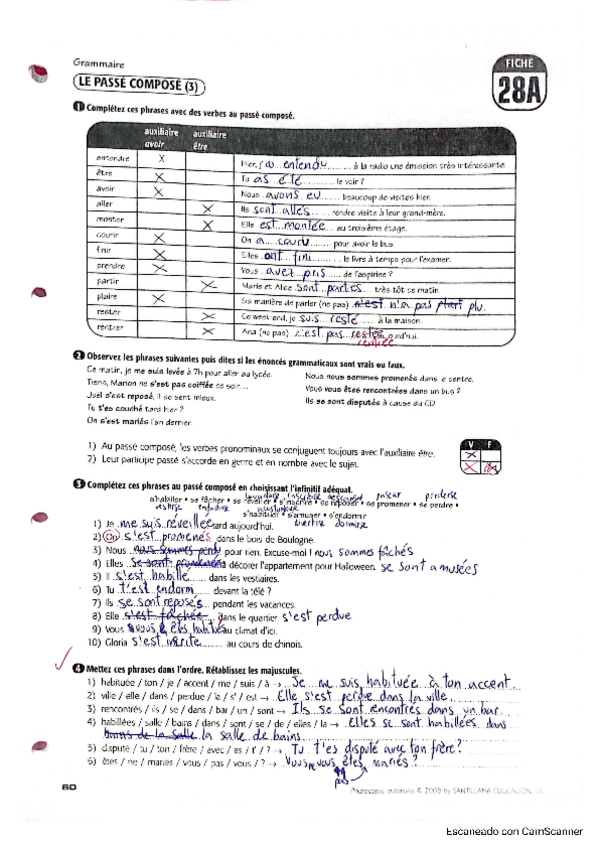 Grammaire
LE PASSÉ COMPOSÉ (3)
FICHE
28A
1 Complétez ces phrases avec des verbes au passé composé.
auxiliaire avoir
auxiliaire être
entendre X Hier, j'ai entendu à la radio une émission très intéressante.
être X Tu as été le voir ?
avoir X Nous avons eu beaucoup de visites hier.
aller X Ils sont allés rendre visite à leur grand-mère.
monter X Elle est montée au troisième étage.
courir X On a couru pour avoir le bus
finir X Elles ont fini le livre à temps pour l'examen.
prendre X Vous avez pris de l'aspirine ?
partir X Marie et Alice sont parties très tôt ce matin.
plaire X Sa manière de parler (ne pas) n'est n'a pas plu.
rester X Ce week-end, je suis resté à la maison.
rentrer X Ana (ne pas) n'est pas restée aujourd'hui.
rentrée
2 Observez les phrases suivantes puis dites si les énoncés grammaticaux sont vrais ou faux.
Ce matin, je me suis levée à 7h pour aller au lycée.
Tiens, Marion ne s'est pas coiffée ce soir...
Joël s'est reposé, il se sent mieux.
Tu t'es couché tard hier ?
On s'est mariés l'an dernier.
Nous nous sommes promenés dans le centre.
Vous vous êtes rencontrés dans un bus ?
Ils se sont disputés à cause du CD
V F
1) Au passé composé, les verbes pronominaux se conjuguent toujours avec l'auxiliaire être. X
2) Leur participe passé s'accorde en genre et en nombre avec le sujet. X
3 Complétez ces phrases au passé composé en choisissant l'infinitif adéquat.
s'habiller • se fâcher • se réveiller • s'inscrire • se reposer • se promener • se perdre •
s'habituer • s'amuser • s'endormir
1) Je me suis réveillée tard aujourd'hui.
2) On s'est promenés dans le bois de Boulogne.
3) Nous nous sommes perdu pour rien. Excuse-moi ! nous sommes fâchés
4) Elles se sont promenées à décorer l'appartement pour Halloween. se sont amusées
5) Il s'est habille dans les vestiaires.
6) Tu t'est endorm devant la télé ?
7) Ils se sont reposés pendant les vacances.
8) Elle s'est fâchée dans le quartier. s'est perdue
9) Vous vous êtes habitué au climat d'ici.
10) Gloria s'est inscrite au cours de chinois.
4 Mettez ces phrases dans l'ordre. Rétablissez les majuscules.
1) habituée / ton / je / accent / me / suis / à → Je me suis habituée à ton accent.
2) ville / elle / dans / perdue / la / s' / est → Elle s'est perdue dans la ville.
3) rencontrés / ils / se / dans / bar / un / sont → Ils se sont encontres dans un bar.
4) habillées / salle / bains / dans / sont / se / de / elles / la → Elles se sont habillées dans
bains de la salle la salle de bains.
5) disputé / tu / ton / frère / avec / es / t' / ? → Tu t'es disputé avec ton frère?
6) êtes / ne / mariés / vous / pas / vous / ? → Vous ne vous êtes mariés?
pas
60
Photocopie autorisée © 2009 by SANTILLANA EDUCACIÓN, S.L.
Escaneado con CamScanner